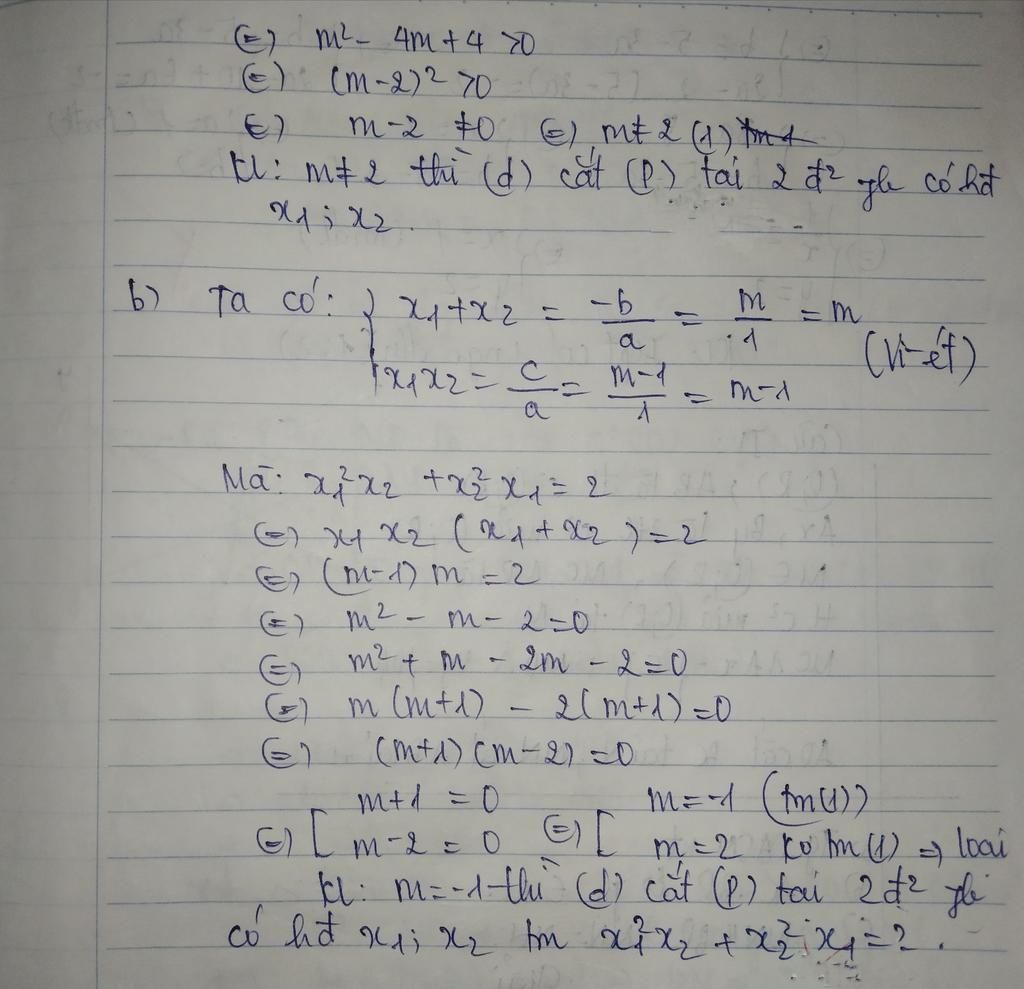 (=) m² - 4m + 4 >0
(=) (m-2)² >0
(=) m-2 ≠0 (=) m≠2 (1)
Kl: m≠2 thì (d) cắt (P) tại 2 đ² gb có hđ
x1; x2.
b) Ta có: { x1+x2 = -b/a = m/1 = m
x1x2 = c/a = m-1/1 = m-1 (Vi-ét)
Mà: x1²x2 + x2²x1 = 2
(=) x1 x2 (x1 + x2) = 2
(=) (m-1) m = 2
(=) m² - m - 2 =0
(=) m² + m - 2m - 2 =0
(=) m (m+1) - 2(m+1) =0
(=) (m+1) (m-2) =0
(=) [ m+1 = 0 (=) [ m=-1 (tm(1))
m-2 = 0 m=2 ko tm(1) => loại
Kl: m=-1 thì (d) cắt (P) tại 2đ² gb
có hđ x1; x2 tm x1²x2 + x2²x1 = 2.